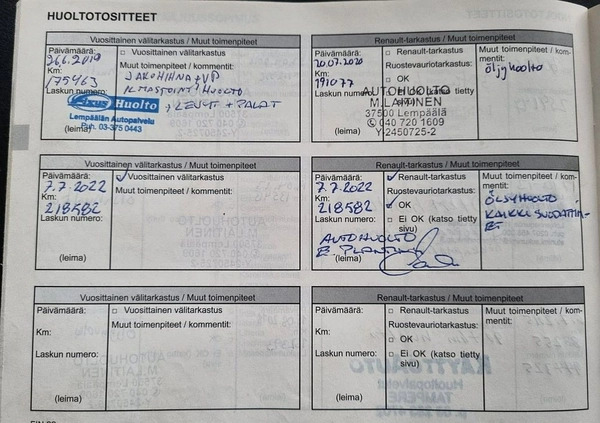 HUOLTOTOSITTEET
Vuosittainen välitarkastus / Muut toimenpiteet
Päivämäärä:
26.6.2019
Km:
175463
Laskun numero:
(leima)
□ Vuosittainen välitarkastus
Muut toimenpiteet / kommentit:
JAKOHIHNA + VP
ILMASTOINTIHUOLTO
+ LEVYT + PALAT
Huolto
Lempäälän Autopalvelu
Puh. 03-375 0443
Renault-tarkastus / Muut toimenpiteet
Päivämäärä:
20.07.2020
Km:
191077
Laskun numero:
(leima)
□ Renault-tarkastus
Ruostevauriotarkastus:
□ OK
AUTOHUOLTO
M.LAITINEN
37500 Lempäälä
040 720 1609
Y-2450725-2
Muut toimenpiteet / kom-
mentit:
öljyhuolto
Vuosittainen välitarkastus / Muut toimenpiteet
Päivämäärä:
7.7.2022
Km:
218582
Laskun numero:
(leima)
Vuosittainen välitarkastus
Muut toimenpiteet / kommentit:
Renault-tarkastus / Muut toimenpiteet
Päivämäärä:
7.7.2022
Km:
218582
Laskun numero:
AUTOHUOLTO
(leima)
Renault-tarkastus
Ruostevauriotarkastus:
OK
□ Ei OK (katso tietty
sivu)
Muut toimenpiteet / kom-
mentit:
ÖLJYHUOLTO
KAIKKI SUODATTIM-
ET
Vuosittainen välitarkastus / Muut toimenpiteet
Päivämäärä:
Km:
Laskun numero:
(leima)
□ Vuosittainen välitarkastus
Muut toimenpiteet / kommentit:
Renault-tarkastus / Muut toimenpiteet
Päivämäärä:
Km:
Laskun numero:
(leima)
□ Renault-tarkastus
Ruostevauriotarkastus:
□ OK
□ Ei OK (katso tietty
sivu)
Muut toimenpiteet / kom-
mentit: